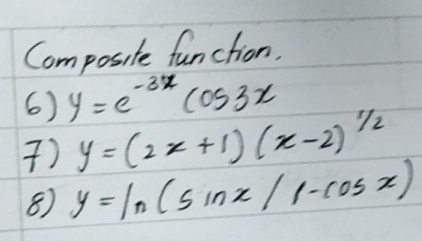 Composite function.
6) y = e^-3x cos3x
7) y = (2x + 1) (x - 2)^1/2
8) y = ln (sinx / 1-cosx)